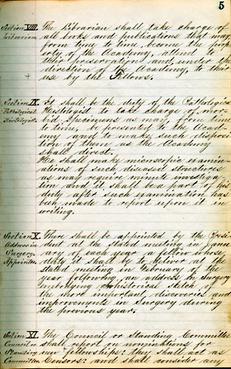 5
Section VIII. The Librarian shall take charge of
Librarian all books and publications that may
from time to time become the prop-
erty of the Academy, attend to
their preservation and under the
direction of the Academy, to their
use by the Fellows.
Section IX. It shall be the duty of the Pathological
Pathological Histologist to take charge of mor-
Histologist. bid Specimens as may, from time
to time, be presented to the Acad-
emy and to make such disposi-
tion of them as the Academy
shall direct.
He shall make microscopic examin-
ations of such diseased structures
as may require minute investiga-
tion and it shall be a part of his
duty after such examination has
been made to report upon it in
writing.
Section X. There shall be appointed by the Presi-
Address in dent at the stated meeting in Janu-
Surgery ary of each year a fellow whose
Appointee duty it shall be to deliver at the
stated meeting in February of the
year following, an address in Surgery
embodying a historical sketch of
the most important discoveries and
improvements in Surgery during
the previous year.
Section XI. The Council or Standing Committee
Council or shall report on nominations for
Standing new fellowships: they shall act as
Committee Censors: and shall consider any